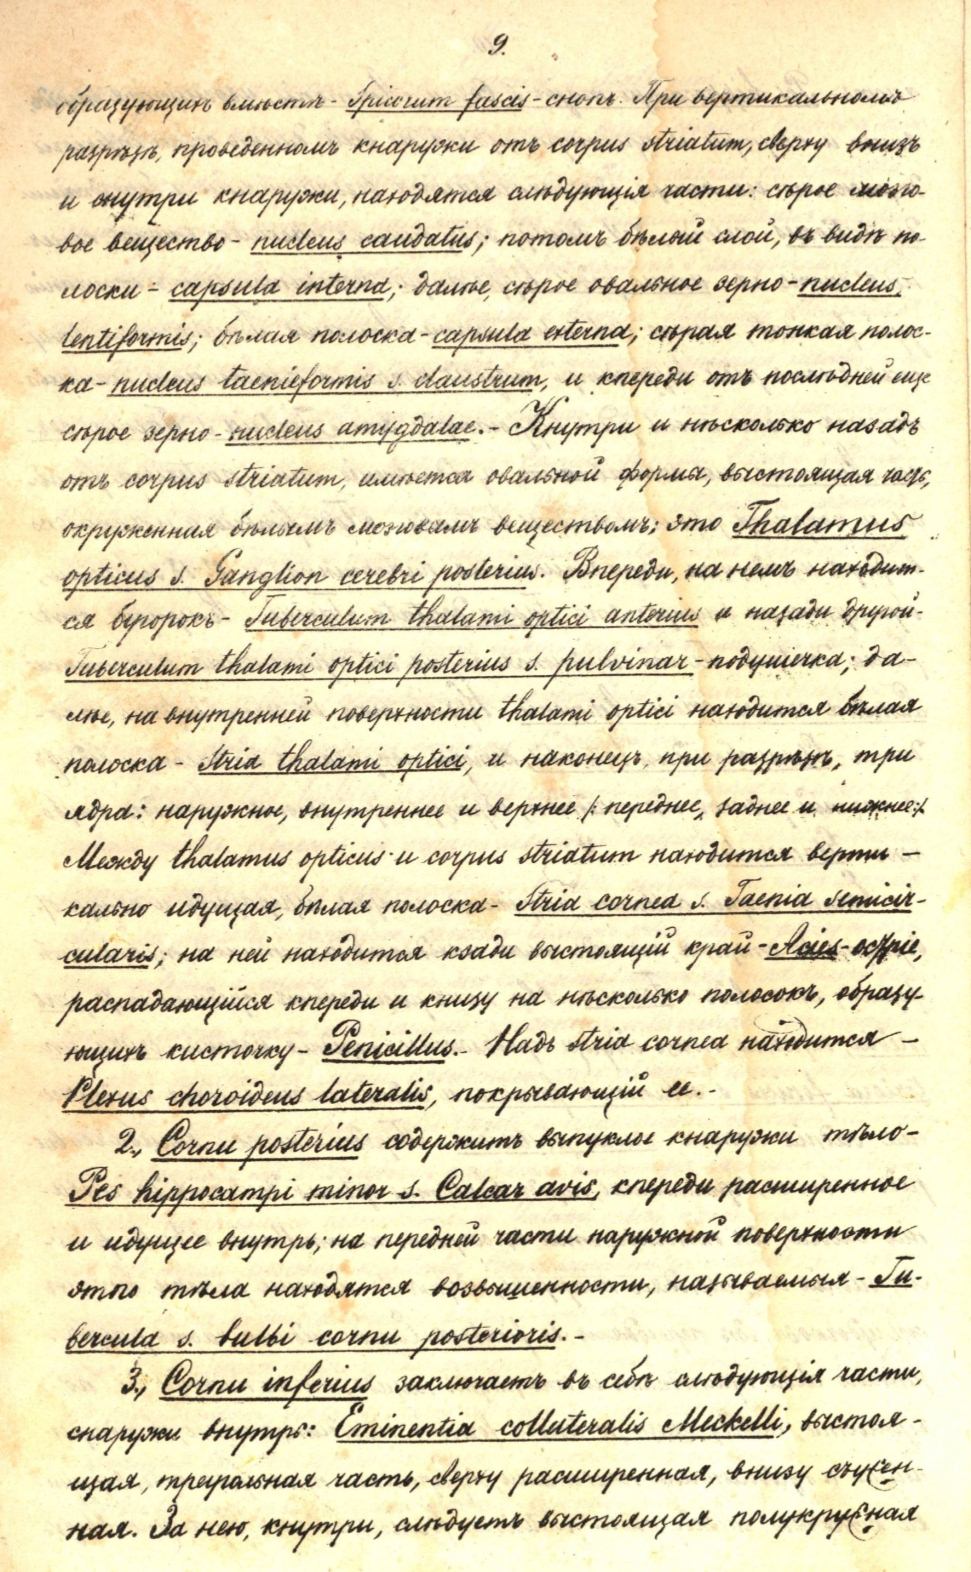 9.
образующихъ вмѣстѣ - Spicorum fascis - снопъ. При вертикальномъ
разрѣзѣ, проведенномъ кнаружи отъ corpus striatum, сверху внизъ
и внутри кнаружи, находятся слѣдующія части: сѣрое мозго-
вое вещество - nucleus caudatus; потомъ бѣлый слой, въ видѣ по-
лоски - capsula interna; далѣе, сѣрое овальное зерно - nucleus
lentiformis; бѣлая полоска - capsula externa; сѣрая тонкая полос-
ка - nucleus taenieformis s. claustrum, и кпереди отъ послѣдней еще
сѣрое зерно - nucleus amygdalae. - Кнутри и нѣсколько назадъ
отъ corpus striatum, имѣется овальной формы, выстоящая часть,
окруженная бѣлымъ мозговымъ веществомъ; это Thalamus
opticus s. Ganglion cerebri posterius. Впереди, на немъ находит-
ся бугорокъ - Tuberculum thalami optici anterius и назади другой -
Tuberculum thalami optici posterius s. pulvinar - подушечка; да-
лѣе, на внутренней поверхности thalami optici находится бѣлая
полоска - Stria thalami optici, и наконецъ, при разрѣзѣ, три
ядра: наружное, внутреннее и верхнее /: переднее, заднее и нижнее :/
Между thalamus opticus и corpus striatum находится верти-
кально идущая, бѣлая полоска - Stria cornea s. Taenia semicir-
cularis; на ней находится кзади выстоящій край - Acies - остріе,
распадающійся кпереди и книзу на нѣсколько полосокъ, образу-
ющихъ кисточку - Penicillus. - Надъ stria cornea находится -
Plexus choroideus lateralis, покрывающій ее. -
2., Cornu posterius содержитъ выпуклое кнаружи тѣло -
Pes hippocampi minor s. Calcar avis, кпереди расширенное
и идущее внутрь; на передней части наружной поверхности
этого тѣла находятся возвышенности, называемыя - Tu-
bercula s. bulbi cornu posterioris. -
3., Cornu inferius заключаетъ въ себѣ слѣдующія части,
снаружи внутрь: Eminentia collateralis Meckelli, выстоя-
щая, треугольная часть, сверху расширенная, внизу съужен-
ная. За нею, кнутри, слѣдуетъ выстоящая полукружная